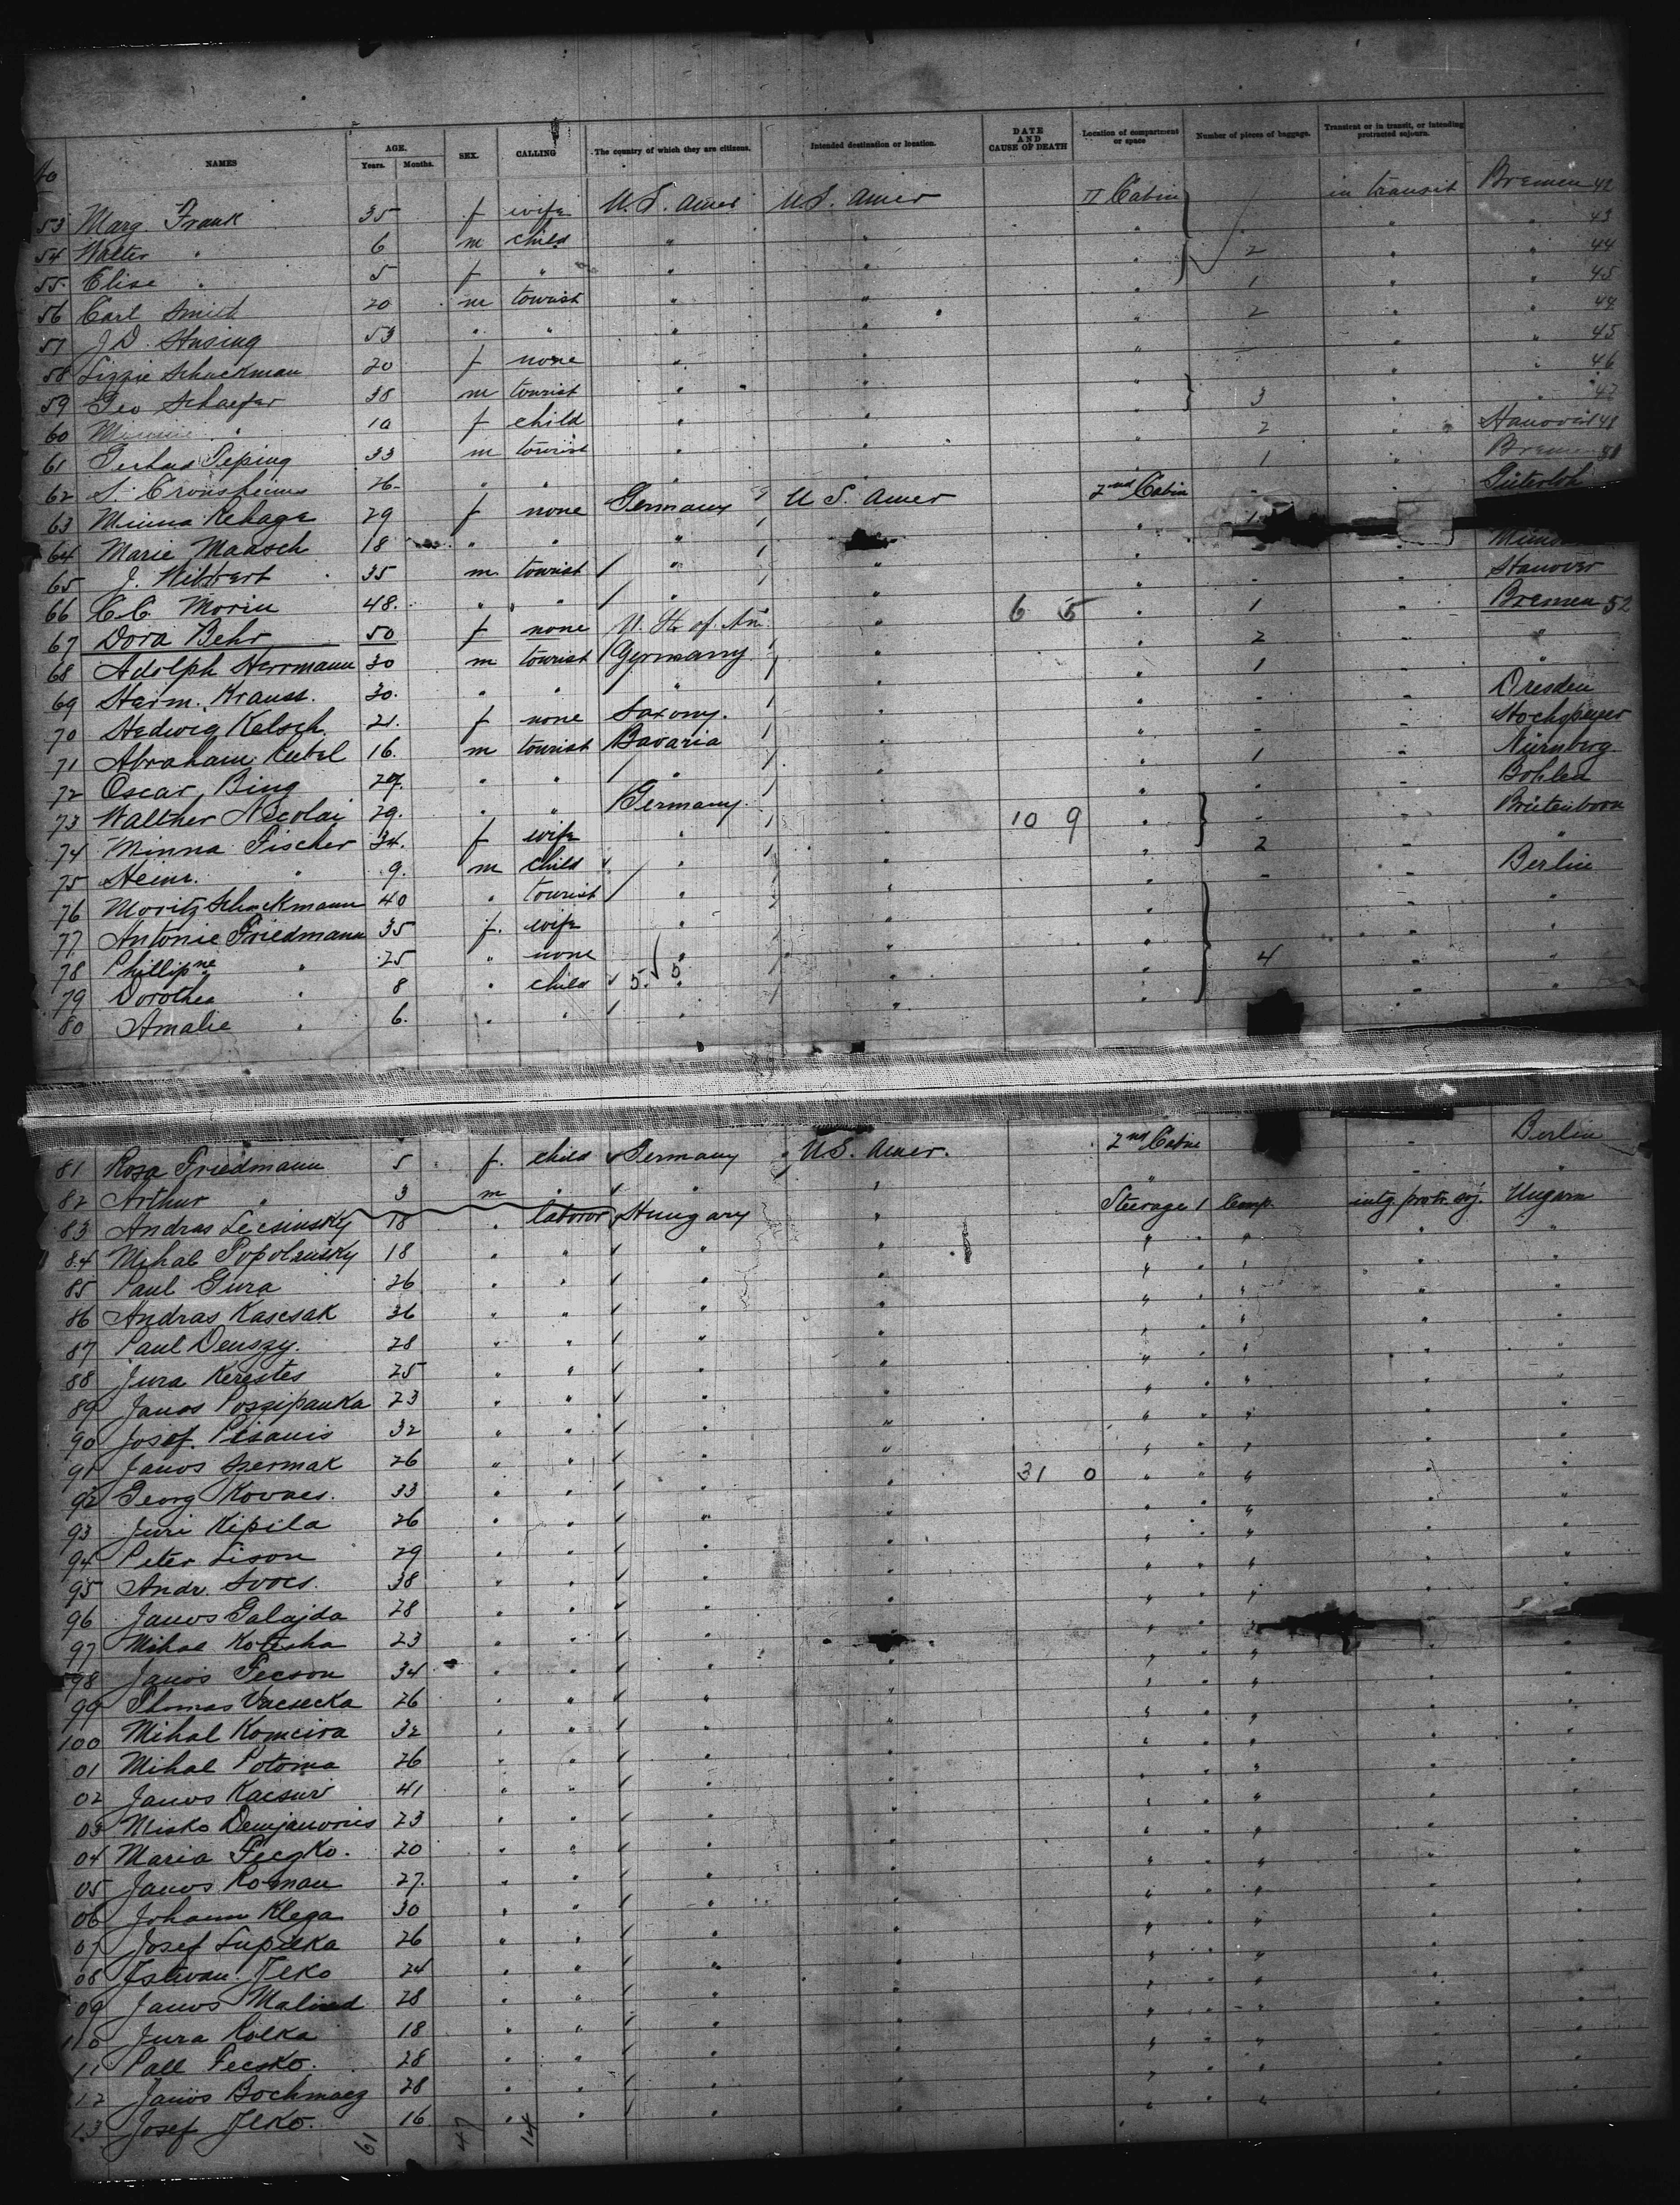 No NAMES AGE. Years. Months. SEX. CALLING The country of which they are citizens. Intended destination or location. DATE AND CAUSE OF DEATH Location of compartment or space Number of pieces of baggage. Transient or in transit, or intending protracted sojourn.
53 Marg Frank 35 f wife U.S. Amer U.S. Amer II Cabin in transit Bremen 42
54 Walter " 6 m child " " " " " 43
55 Elise " 5 f " " " " 2 " " 44
56 Carl Smith 20 m tourist " " " 1 " " 45
57 J.D. Husing 53 " " " " " 2 " " 44
58 Lizzie Schackman 20 f none " " " " " 45
59 Geo Schaefer 38 m tourist " " " " " 46
60 " 10 f child " " " 3 " " 47
61 33 m tourist " " " 2 " Hanover 48
62 S. 26 " " " " " 1 " Bremen
63 Minna Kehage 29 f none Germany U S. Amer 2nd Cabin " " Güterloh
64 Marie Maasch 18 " " " " " 1
65 J. 35 m tourist " " " " Hanover
66 C.C. Morin 48. " " " " " 1 " Bremen 52
67 Dora Behr 50 f none U. St. of Am. " 6 5 " 2 " "
68 Adolph Herrmann 30 m tourist Germany " " 1 " "
69 Herm. Krauss. 30. " " " " " " " Dresden
70 Hedwig Kelsch. 21. f none Saxony. " " " " Hochspeyer
71 Abraham Kubel 16. m tourist Bavaria " " 1 " Nürnberg
72 Oscar Bing 27. " " " " " " " Bohlen
73 Walther Nicolai 29. " " Germany. " " " "
74 Minna Fischer 34. f wife " " 10 9 " 2 " "
75 Heinr. " 9. m child " " " " " Berlin
76 Moritz Schackmann 40 " tourist " " " " "
77 Antonie Friedmann 35 f. wife " " " " "
78 Phillipne " 25 " none " " " 4 " "
79 Dorothea " 8 " child 5. 5 " " " " "
80 Amalie " 6. " " " " "
81 Rosa Friedmann 5 f. child Germany U.S. Amer. 2nd Cabin " Berlin
82 Arthur " 3 m " " " " " "
83 Andras Lecsinsky 18 " laboror Hungary " Steerage 1 Comp. intg. protr. soj. Ungarn
84 Mihal Popolansky 18 " " " " " " " "
85 Paul Gura 26 " " " " " " " "
86 Andras Kascsak 36 " " " " " " " "
87 Paul Deuszy. 28 " " " " " " " "
88 Jura Kerestes 25 " " " " " " " "
89 Janos Poszipanka 23 " " " " " " " "
90 Josef. Pisanis 32 " " " " " " " "
91 Janos Szermak 26 " " " " " " " "
92 Georg Kovacs. 33 " " " " 31 0 " " " "
93 Juri Kipila 26 " " " " " " " "
94 Peter Lison 29 " " " " " " " "
95 Andr. Svocs. 38 " " " " " " " "
96 Janos Galajda 28 " " " " " " " "
97 Mihal Kotisha 23 " " " " " " " "
98 Janos Fecson 34 " " " " " " " "
99 Thomas Vacsecka 26 " " " " " " " "
100 Mihal Komcira 32 " " " " " " " "
01 Mihal Potoma 26 " " " " " " " "
02 Janos Kacsur 41 " " " " " " " "
03 Misko Demjanovics 23 " " " " " " " "
04 Maria Feczko. 20 " " " " " " " "
05 Janos Roman 27. " " " " " " " "
06 Johann Klega 30 " " " " " " " "
07 Josef Lupeka 26 " " " " " " " "
08 Istwan. Ilko 24 " " " " " " " "
09 Janos 28 " " " " " " " "
110 Jura Kolka 18 " " " " " " " "
11 Pall Fecsko. 28 " " " " " " " "
12 Janos 28 " " " " " " " "
13 Josef Ilko. 16 " " " " " " " "
61 47 14